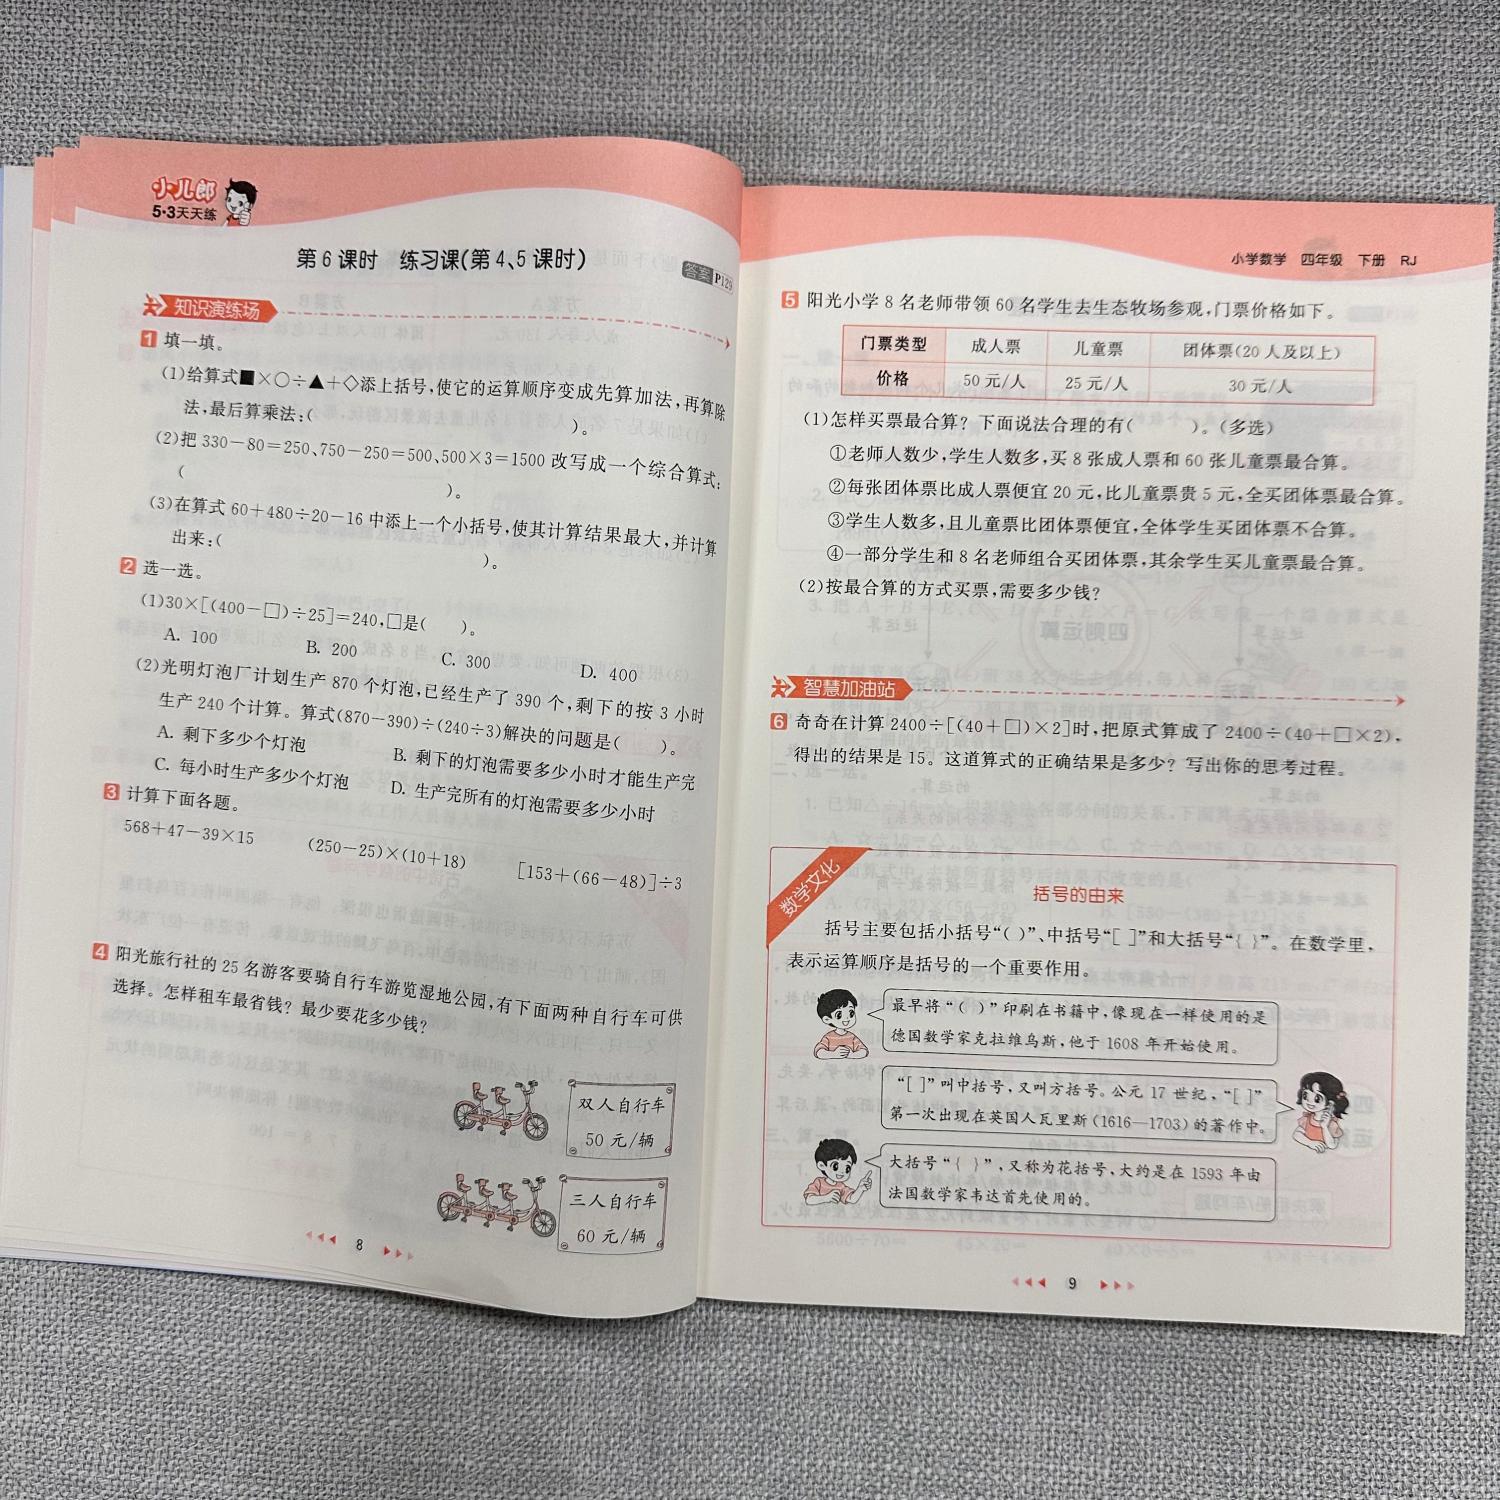 小儿郎
5·3天天练
第6课时 练习课(第4、5课时)
答案P129
知识演练场
1 填一填。
(1)给算式■×○÷▲+◇添上括号,使它的运算顺序变成先算加法,再算除
法,最后算乘法:( )。
(2)把330-80=250、750-250=500、500×3=1500改写成一个综合算式:
( )。
(3)在算式60+480÷20-16中添上一个小括号,使其计算结果最大,并计算
出来:( )。
2 选一选。
(1)30×[(400-□)÷25]=240,□是( )。
A. 100 B. 200 C. 300 D. 400
(2)光明灯泡厂计划生产870个灯泡,已经生产了390个,剩下的按3小时
生产240个计算。算式(870-390)÷(240÷3)解决的问题是( )。
A. 剩下多少个灯泡 B. 剩下的灯泡需要多少小时才能生产完
C. 每小时生产多少个灯泡 D. 生产完所有的灯泡需要多少小时
3 计算下面各题。
568+47-39×15 (250-25)×(10+18) [153+(66-48)]÷3
4 阳光旅行社的25名游客要骑自行车游览湿地公园,有下面两种自行车可供
选择。怎样租车最省钱?最少要花多少钱?
双人自行车
50元/辆
三人自行车
60元/辆
8
小学数学 四年级 下册 RJ
5 阳光小学8名老师带领60名学生去生态牧场参观,门票价格如下。
门票类型 成人票 儿童票 团体票(20人及以上)
价格 50元/人 25元/人 30元/人
(1)怎样买票最合算?下面说法合理的有( )。(多选)
①老师人数少,学生人数多,买8张成人票和60张儿童票最合算。
②每张团体票比成人票便宜20元,比儿童票贵5元,全买团体票最合算。
③学生人数多,且儿童票比团体票便宜,全体学生买团体票不合算。
④一部分学生和8名老师组合买团体票,其余学生买儿童票最合算。
(2)按最合算的方式买票,需要多少钱?
智慧加油站
6 奇奇在计算2400÷[(40+□)×2]时,把原式算成了2400÷(40+□×2),
得出的结果是15。这道算式的正确结果是多少?写出你的思考过程。
数学文化
括号的由来
括号主要包括小括号“( )”、中括号“[ ]”和大括号“{ }”。在数学里,
表示运算顺序是括号的一个重要作用。
最早将“( )”印刷在书籍中,像现在一样使用的是
德国数学家克拉维乌斯,他于1608年开始使用。
“[ ]”叫中括号,又叫方括号。公元17世纪,“[ ]”
第一次出现在英国人瓦里斯(1616—1703)的著作中。
大括号“{ }”,又称为花括号,大约是在1593年由
法国数学家韦达首先使用的。
9